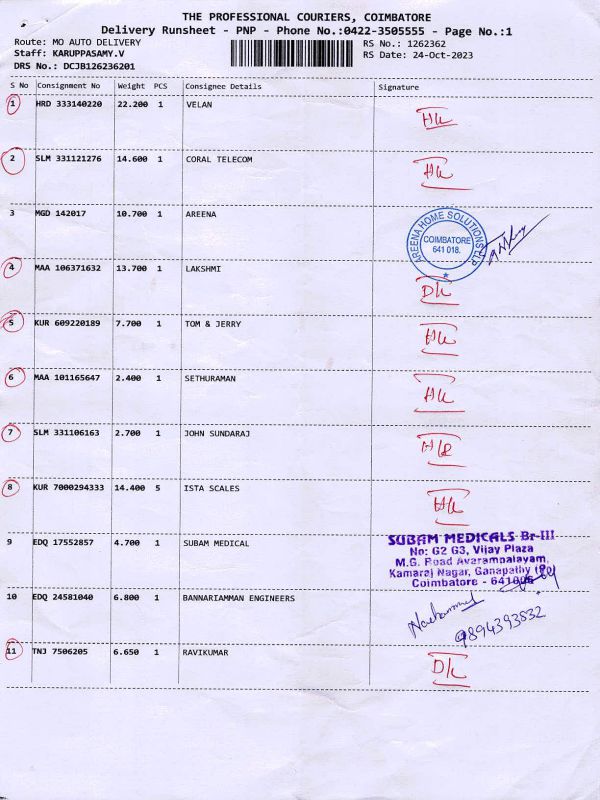 THE PROFESSIONAL COURIERS, COIMBATORE
Delivery Runsheet - PNP - Phone No.:0422-3505555 - Page No.:1
Route: MO AUTO DELIVERY RS No.: 1262362
Staff: KARUPPASAMY.V RS Date: 24-Oct-2023
DRS No.: DCJB126236201
S No Consignment No Weight PCS Consignee Details Signature
1 HRD 333140220 22.200 1 VELAN
2 SLM 331121276 14.600 1 CORAL TELECOM
3 MGD 142017 10.700 1 AREENA
AREENA HOME SOLUTIONS LLP
COIMBATORE
641 018.
4 MAA 106371632 13.700 1 LAKSHMI D/L
5 KUR 609220189 7.700 1 TOM & JERRY
6 MAA 101165647 2.400 1 SETHURAMAN
7 SLM 331106163 2.700 1 JOHN SUNDARAJ
8 KUR 7000294333 14.400 5 ISTA SCALES
9 EDQ 17552857 4.700 1 SUBAM MEDICAL
SUBAM MEDICALS Br-III
No: G2 G3, Vijay Plaza
M.G. Road Avarampalayam,
Kamaraj Nagar, Ganapathy (PO)
Coimbatore - 641006
10 EDQ 24581040 6.800 1 BANNARIAMMAN ENGINEERS
9894393832
11 TNJ 7506205 6.650 1 RAVIKUMAR D/L